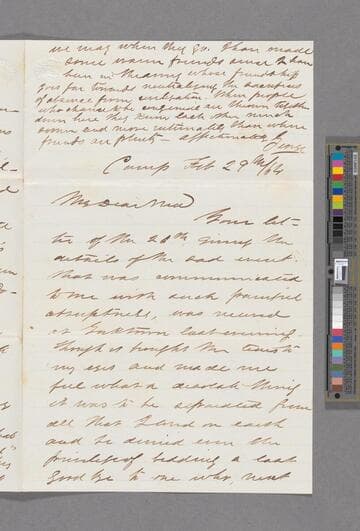 we may when they go. I have made
some warm friends since I have
been in the army whose friendship
goes far towards neutralizing the
of absence from civilization. When people
who chance to be congenial are thrown together
down here they love each other much
sooner and more intimately than where
friends are plenty – affectionately
George
Camp Feb 29th/64
My Dear
Your let-
ter of the 26th giving the
details of the sad event
that was communicated
to me with such painful
abruptness, was received
at last evening.
Though it brought the tears to
my eyes and made me
feel what a desolate thing
it was to be separated from
all that I love on earth
and be denied even the
privilege of bidding a last
good bye to one who, next